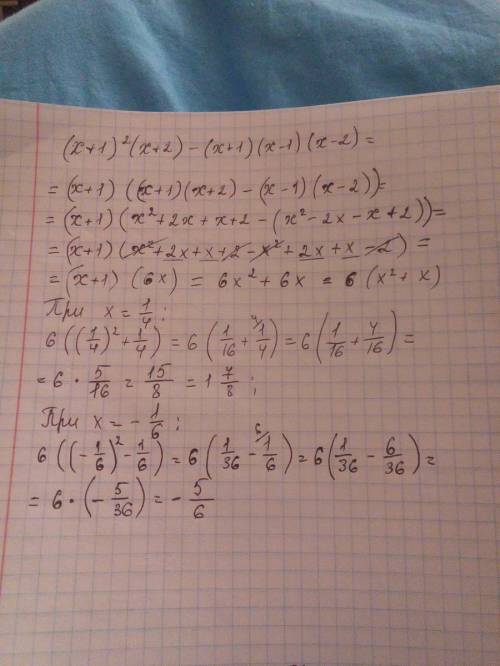 (x+1)²(x+2) - (x+1)(x-1)(x-2) =
= (x+1)((x+1)(x+2) - (x-1)(x-2)) =
= (x+1)(x²+2x+x+2-(x²-2x-x+2)) =
= (x+1)(x²+2x+x+2-x²+2x+x-2) =
= (x+1)(6x) = 6x²+6x = 6(x²+x)
При x = 1/4 :
6((1/4)²+1/4) = 6(1/16 + ⁴⁄1/4) = 6(1/16 + 4/16) =
= 6 · 5/16 = 15/8 = 1 7/8 ;
При x = - 1/6 :
6((-1/6)² - 1/6) = 6(1/36 - ⁶⁄1/6) = 6(1/36 - 6/36) =
= 6 · (- 5/36) = - 5/6